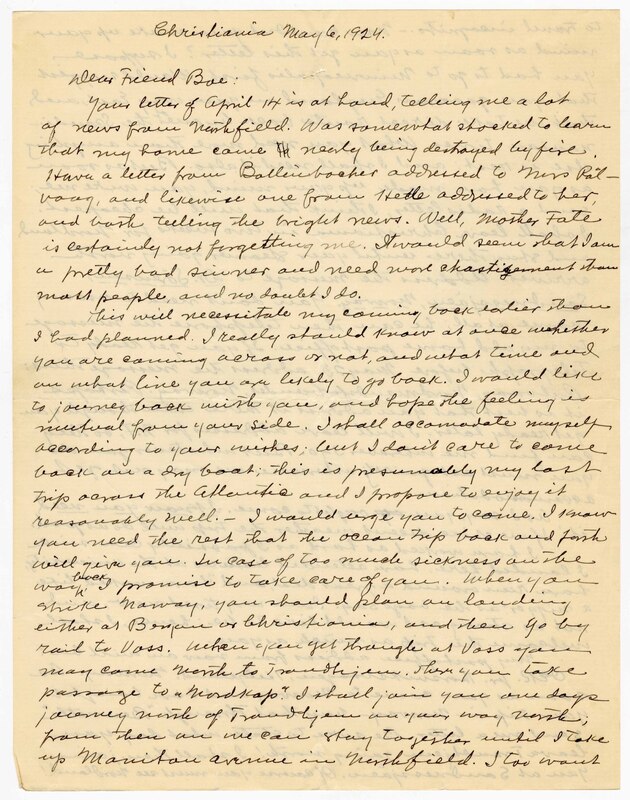 Christiania May 6, 1924.
Dear Friend Boe:
Your letter of April 14 is at hand, telling me a lot
of news from Northfield. Was somewhat shocked to learn
that my home came nearly being destroyed by fire.
Have a letter from Bollenbacher addressed to Mrs Röl-
vaag, and likewise one from Hetle addressed to her,
and both telling the bright news. Well, Mother Fate
is certainly not forgetting me. It would seem that I am
a pretty bad sinner and need more chastigement than
most people, and no doubt I do.
This will necessitate my coming back earlier than
I had planned. I really should know at once whether
you are coming across or not, and what time and
on what line you are likely to go back. I would like
to journey back with you, and hope the feeling is
mutual from your side. I shall accomodate myself
according to your wishes; but I don't care to come
back on a dry boat; this is presumably my last
trip across the Atlantic and I propose to enjoy it
reasonably well. – I would urge you to come. I know
you need the rest that the ocean trip back and forth
will give you. In case of too much sickness on the
way back I promise to take care of you. When you
strike Norway, you should plan on landing
either at Bergen or Christiania, and then go by
rail to Voss. When you get through at Voss you
may come north to Trondhjem. There you take
passage to "Nordkap". I shall join you one days
journey north of Trondhjem on your way north;
from then on we can stay together until I take
up Manitou avenue in Northfield. I too want